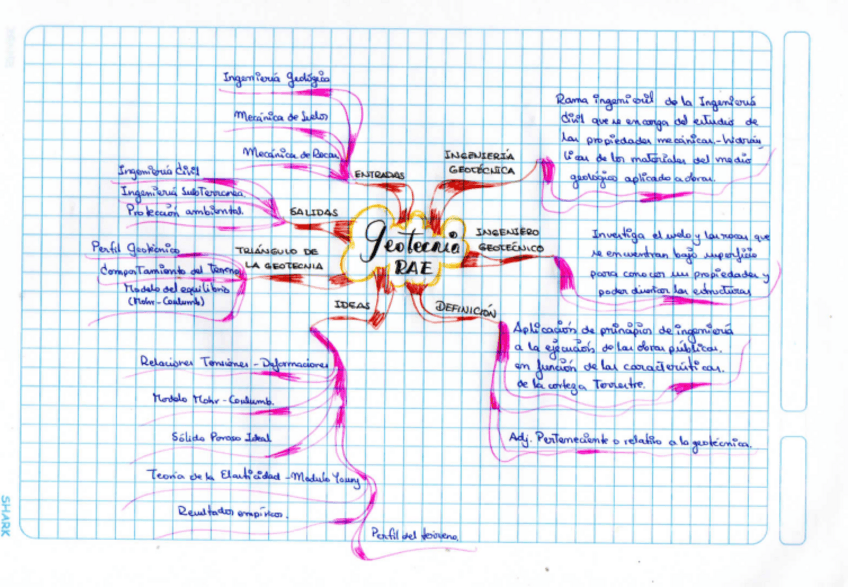 Geotecnia
RAE
INGENIERÍA
GEOTÉCNICA
Rama ingenieril de la Ingeniería
Civil que se encarga del estudio de
las propiedades mecánicas-hidráu
licas de los materiales del medio
geológico aplicado a obras.
INGENIERO
GEOTECNICO
Investiga el suelo y las rocas que
se encuentran bajo superficie
para conocer sus propiedades y
poder diseñar las estructuras
DEFINICIÓN
Aplicación de principios de ingeniería
a la ejecución de las obras públicas.
en función de las características.
de la corteza Terrestre.
Adj. Perteneciente o relativo a la geotécnica.
IDEAS
Relaciones Tensiones - Deformaciones
Modelo Mohr - Coulumb.
Sólido Poroso Ideal
Teoría de la Elasticidad - Modulo Young
Resultados empíricos.
Perfil del terreno.
TRIÁNGULO DE
LA GEOTECNIA
Perfil Geotécnico
Comportamiento del Terreno
Modelo del equilibrio
(Mohr - Coulumb)
SALIDAS
Ingeniería Civil
Ingeniería SubTerranea
Protección ambiental.
ENTRADAS
Ingeniería Geológica
Mecánica de Suelos
Mecánica de Rocas
SHARK